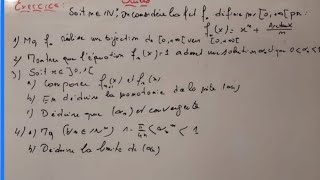 Exercice:
Soit n ∈ ℕ*, on considère la fct fₙ définie sur [0,+∞[ par:
fₙ(x) = xⁿ + Arctan x
1) Mq fₙ réalise une bijection de [0,+∞[ vers [0,+∞[
2) Montrer que l'équation fₙ(x)=1 admet une solution αₙ que 0<αₙ<1
3) Soit x ∈ ]0,1[
a) comparer fₙ₊₁(x) et fₙ(x)
b) En déduire la monotonie de la suite (αₙ)
c) Déduire que (αₙ) est convergente
4) a) Mq (∀n ∈ ℕ*) 1 - < αₙⁿ < 1
b) Déduire la limite de (αₙ)